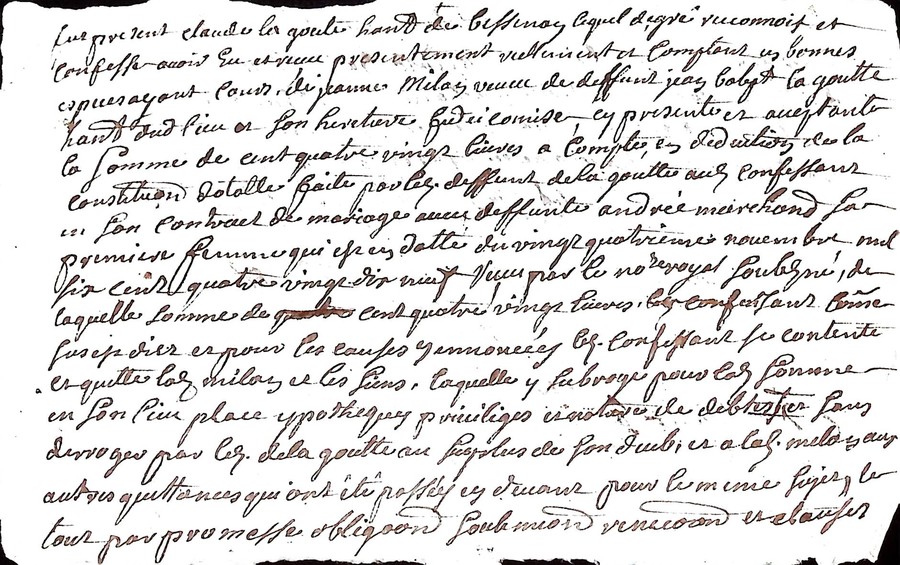 fut present claude la goute habt de bessenay lequel de gré reconnoit et
confesse avoir Eu et receu presentement reellement et Comptant en bonnes
especes ayant cours, de jeanne Milan veuve de deffunt jean bapt la goutte
habt dud lieu et son heritiere fideicomise cy presente et acceptante
la Somme de cent quatre vingt livres a Compte, en deduction de la
constituon dotalle faite par led. deffunt de la goutte aud confessant
en son contract de mariage avec deffunte andrée marchand sa
premiere femme qui est en datte du vingt quatrieme novembre mil
six cent quatre vingt dix neuf Receu par le nore royal soubsné, de
laquelle somme de cent quatre vingt livres, led confessant Coñe
susest dict et pour les causes y ennoncées led. confessant se contente
et quitte lad milan et les siens, laquelle y subroge pour lad somme
en son lieu place ypotheques priviliges et nature de debtes et sans
derroger par led. de la goutte au surplus de son dueb, et a lad. milan aux
autres quittances qui ont été passées cy devant pour le meme sujet, le
tout par promesse obligaon soubmion renonciaon et clauses